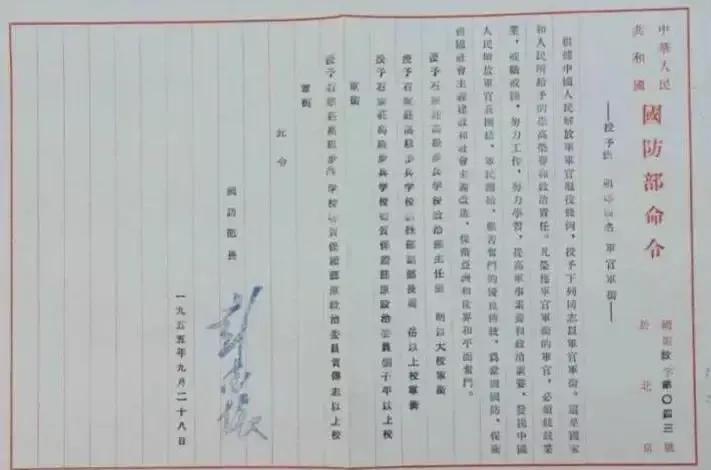 中華人民
共和國
國防部命令
於北京
根據中國人民解放軍軍官服役條例，授予下列同志以軍官軍銜。這是國家
和人民所給予的崇高榮譽和政治責任。凡榮獲軍官軍銜的軍官，必須兢兢業
業，戒驕戒躁，努力工作，努力學習，提高軍事素養和政治素養，發揚中國
人民解放軍官兵團結、軍民團結、艱苦奮鬥的優良傳統，為鞏固國防、保衛
祖國社會主義建設和社會主義改造，保衛亞洲和世界和平而奮鬥。
授予石家莊高級步兵學校政治部主任 明以大校軍銜
授予石家莊高級步兵學校 部副部長 岳以上校軍銜
授予石家莊高級步兵學校物資保證部原政治委員 子年以上校
軍銜
授予石家莊高級步兵學校物資保證部原政治委員賀傳志以上校
軍銜
此令
國防部長
彭德懷
一九五五年九月二十八日